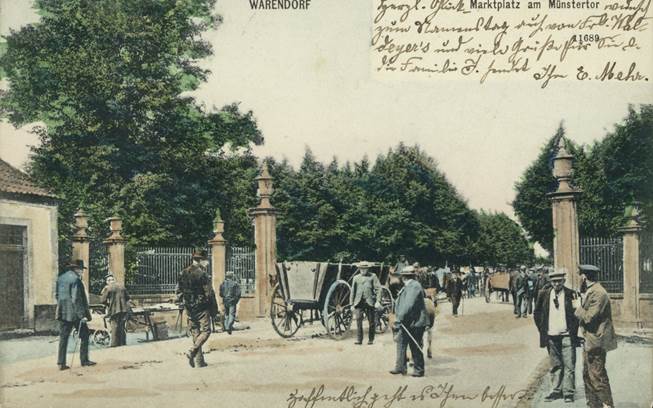 WARENDORF
Marktplatz am Münstertor
11689
Herzl. Glückwunsch
zum Namenstag auf von Frl. Wal
deyer's und viele Grüße für Sie u.
die Familie J. sendet Ihr E. Mehr.
Hoffentlich geht es Ihnen besser.